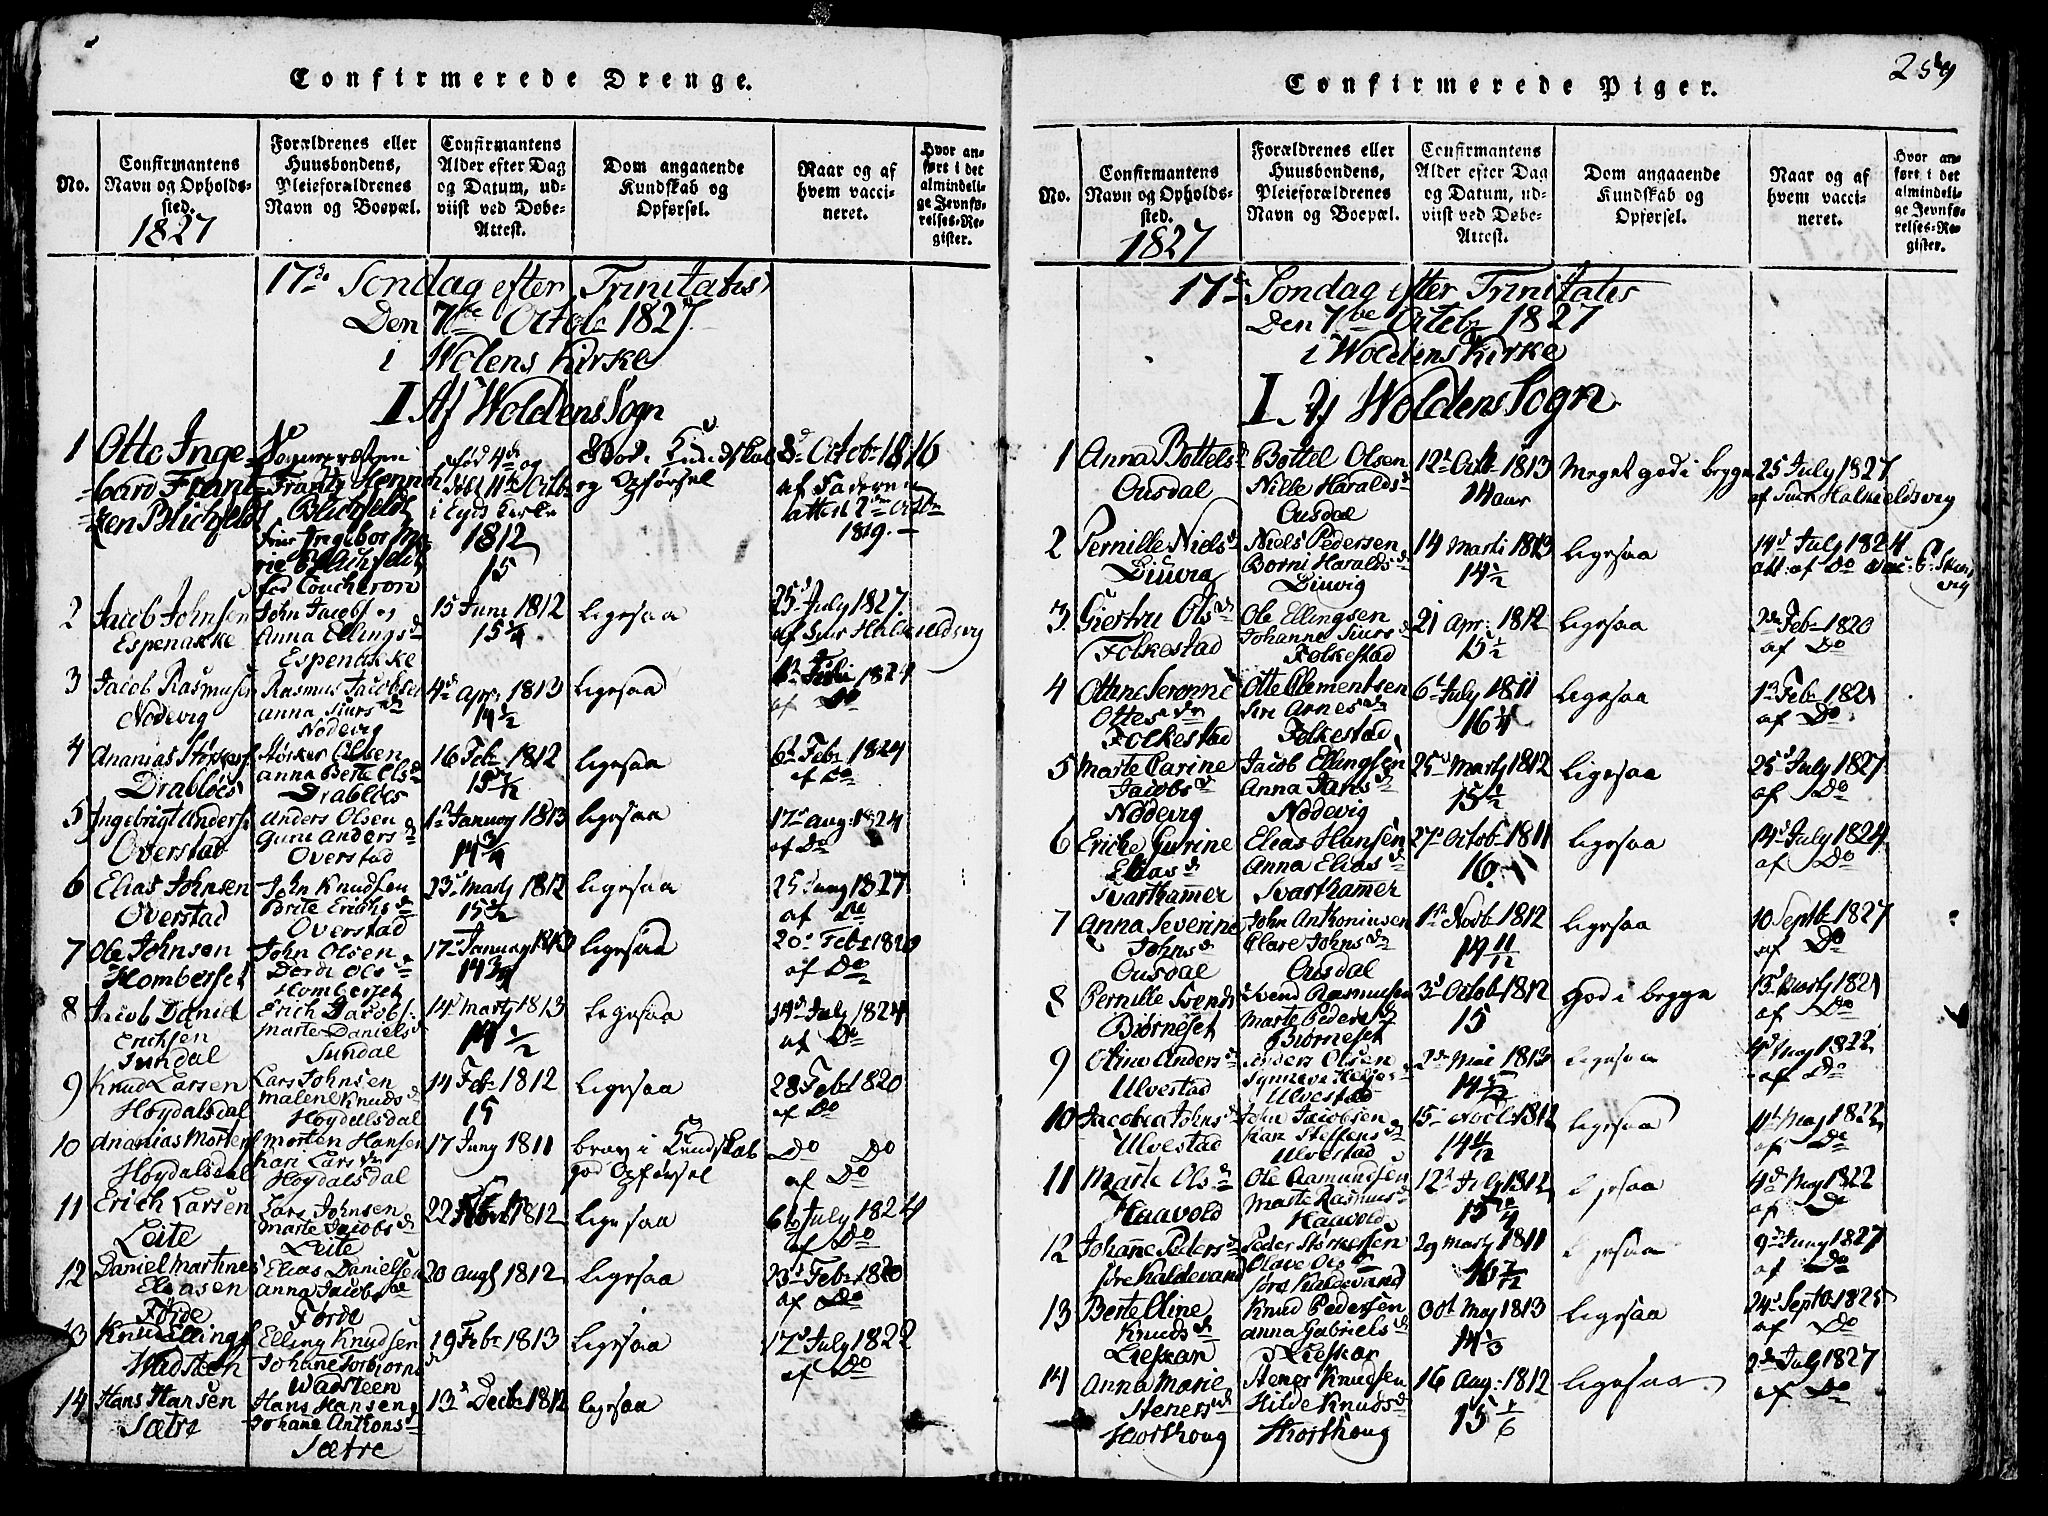 Confirmerede Drenge.
No.
Confirmantens Navn og Opholds-sted.
1827
Forældrenes eller Huusbondens, Pleieforældrenes Navn og Boepæl.
Confirmantens Alder efter Dag og Datum, ud-viist ved Døbe-Attest.
Dom angaaende Kundskab og Opførsel.
Naar og af hvem vacci-neret.
Hvor an-ført i det almindeli-ge Jevnfø-relses-Re-gister.
17de Søndag efter Trinitatis
Den 7de Octobr 1827
i Wolens Kirke
I Af Woldens Sogn
1 Otto Inge-
Blichfeldt
1812
15
8de Octobr 1816
af Faderen
1819.
2 Jacob Johnsen
Espenakke
John Jacobs og
Anna Ellingsdr
Espenakke
15 Juni 1812
15 1/4
ligesaa
25de July 1827.
3 Jacob Rasmusen
Nødevig
Rasmus Jacobsen
Anna Siursdr
Nødevig
4de Apr: 1813
14 1/2
ligesaa
1824
af Do
4 Ananias Størkers
Drabløs
Størker Olsen
Anna Berte Olsdr
Drabløs
16 Febr 1812
15 7/12
ligesaa
6t Febr 1824
af Do
5 Ingebrigt Anders
Overstad
Anders Olsen
Guni Andersdr
Overstad
1t January 1813
14 3/4
ligesaa
17de aug: 1824
af Do
6 Elias Johnsen
Overstad
John Knudsen
Brite Erichsdr
Overstad
23de Marty 1812
15 1/2
ligesaa
25 Juny 1827
af Do
7 Ole Johnsen
Homberset
John Olsen
Dorde Olsdr
Homberset
17de January 1813
14 3/4
ligesaa
20de Febr 1820
af Do
8 Jacob Daniel
Erichsen
Sundal
Erich Jacobs.
Marte Danielsdr
Sundal
14de Marty 1813
14 1/2
ligesaa
14de July 1824
af Do
9 Knud Larsen
Høydalsdal
Lars Johnsen
Malene Knudsdr
Høydalsdal
14 Febr 1812
15
ligesaa
28 Febr 1820
af Do
10 Ananias Mortens
Høydalsdal
Morten Hansen
Kari Larsdr
Høydalsdal
17 Juny 1811
brav i Kundskab
god Opførsel
Do Do
af Do
11 Erich Larsen
Leite
Lars Johnsen
Marte Jacobsdr
Leite
22 1812
ligesaa
6te July 1824
af Do
12 Daniel Martines
Eliasen
Førde
Elias Danielsen
Anna Jacobsdr
Førde
20 Augs 1812
ligesaa
23de Febr 1820
af Do
13 Knud Ellings
Wadsteen
Elling Knudsen
Johane Torbjørnsdr
Wadsteen
19 Febr 1813
ligesaa
17de July 1822
af Do
14 Hans Hansen
Sætre
Hans Hansen
Johane Anthonsdr
Sætre
13de Decbr 1812
ligesaa
259
Confirmerede Piger.
No.
Confirmantens Navn og Opholds-sted.
1827
Forældrenes eller Huusbondens, Pleieforældrenes Navn og Boepæl.
Confirmantens Alder efter Dag og Datum, ud-viist ved Døbe-Attest.
Dom angaaende Kundskab og Opførsel.
Naar og af hvem vacci-neret.
Hvor an-ført i det almindeli-ge Jevnfø-relses-Re-gister.
17de Søndag efter Trinitatis
Den 7de Octbr 1827
i Woldens Kirke
I. Af Woldens Sogn
1 Anna Bottelsdr
Ousdal
Bottel Olsen
Nille Haraldsdr
Ousdal
12te Octb 1813
14 aar
Meget god i begge
25 July 1827
2 Pernille Nielsdr
Diuvig
Niels Pedersen
Borni Haraldsdr
Diuvig
14 Marti 1813
14 1/2
ligesaa
14de July 1824
3 Giertru Olsdr
Folkestad
Ole Ellingsen
Johanne Siursdr
Folkestad
21 Apr: 1812
15 1/2
ligesaa
2de Febr 1820
af Do
4 Ottine Seronne
Ottesdr
Folkestad
Otte Clementsen
Siri Arnesdr
Folkestad
6t July 1811
16 1/4
ligesaa
af Do
5 Marte Carine
Jacobsdr
Nødevig
Jacob Ellingsen
Anna Jansdr
Nødevig
25de Marty 1812
15 1/2
ligesaa
25de July 1827
af Do
6 Eriche Gurine
Eliasdr
Svarthamer
Elias Hansen
Anna Eliasdr
Svarthamer
27de Octob 1811
16
ligesaa
14de July 1824
af Do
7 Anna Severine
Johnsdr
Ousdal
John Anthoniusen
Clare Johnsdr
Ousdal
1te Novb 1812
14 11/12
ligesaa
10 Septb 1827
af Do
8 Pernille Svends
Biørneset
Svend Rasmusen
Marte Pedersdr
Biørneset
3de Octob 1812
15
god i begge
13de Marty 1821
af Do
9 Oline Andersdr
Ulvestad
Anders Olsen
Ulvestad
2de Mai 1813
14 5/12
ligesaa
4de May 1822
af Do
10 Jacobia Johnsdr
Ulvestad
John Jacobsen
Kari Steffensdr
Ulvestad
15de 1812
14 11/12
ligesaa
4t May 1822
af Do
11 Marte Olsdr
Haavold
Ole Aamundsen
Marte Rasmusdr
Haavold
12te July 1812
15 1/4
ligesaa
4de May 1822
af Do
12 Johanne Pedersdr
Søre Kaldevand
Peder Størkersen
Olave Olsdr
Søre Kaldevand
29 Marty 1811
16 7/12
ligesaa
9de Juny 1827
af Do
13 Berte Eline
Knudsdr
Lieskar
Knud Pedersen
Anna Gabrielsdr
Lieskar
30t May 1813
14 1/3
ligesaa
24de Septb 1825
af Do
14 Anna Marie
Stenersdr
Morthoug
Stener Knudsen
Hilde Knudsdr
Morthoug
16 Aug: 1812
15 1/6
ligesaa.
2de July 1827
af Do